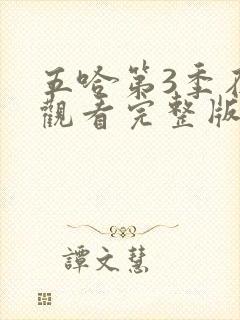 五哈第3季在
觀看完整版
譚文慧